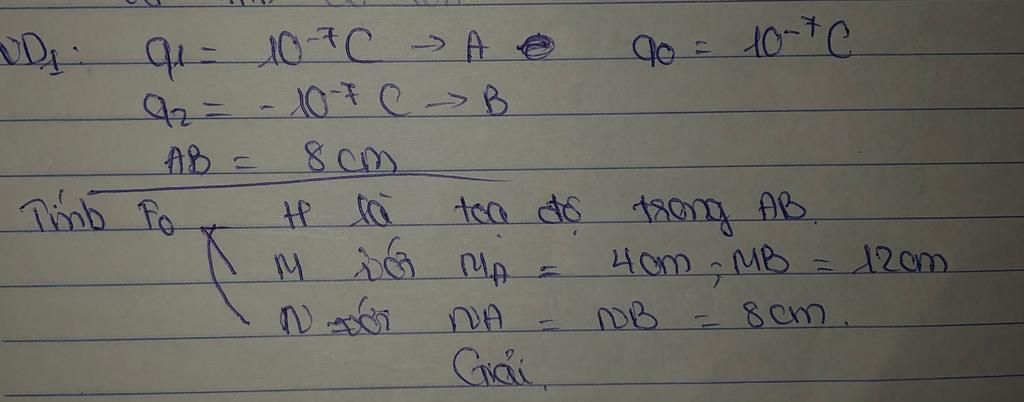 VD1: q1 = 10⁻⁷C → A q0 = 10⁻⁷C
q2 = - 10⁻⁷ C → B
AB = 8cm
Tính F0 H là toạ độ trong AB.
M với MA = 4cm; MB = 12cm
N với NA = NB = 8cm.
Giải.